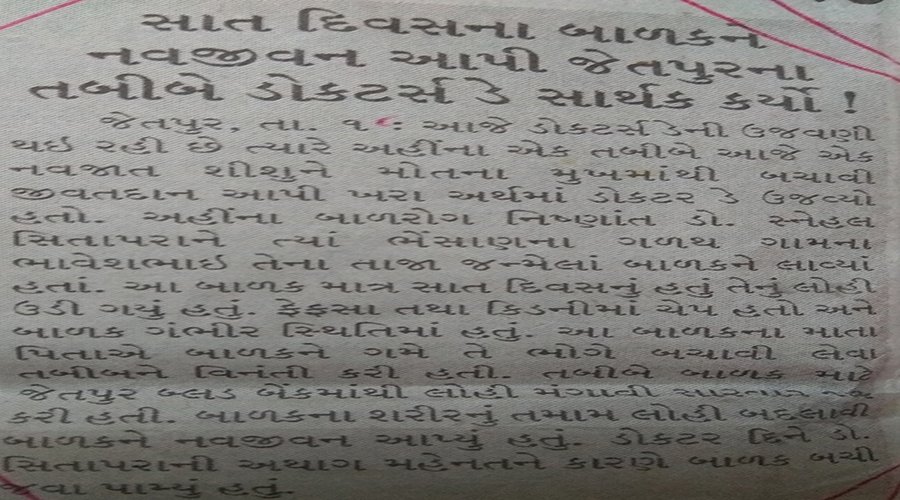 સાત દિવસના બાળકને
નવજીવન આપી જેતપુરના
તબીબે ડોકટર્સ ડે સાર્થક કર્યો !
જેતપુર, તા. ૧ : આજે ડોકટર્સ ડેની ઉજવણી
થઇ રહી છે ત્યારે અહીંના એક તબીબે આજે એક
નવજાત શીશુને મોતના મુખમાંથી બચાવી
જીવતદાન આપી ખરા અર્થમાં ડોકટર ડે ઉજવ્યો
હતો. અહીંના બાળરોગ નિષ્ણાંત ડો. સ્નેહલ
સિતાપરાને ત્યાં ભેંસાણના ગળથ ગામના
ભાવેશભાઇ તેના તાજા જન્મેલાં બાળકને લાવ્યાં
હતાં. આ બાળક માત્ર સાત દિવસનું હતું તેનું લોહી
ઉડી ગયું હતું. ફેફસા તથા કિડનીમાં ચેપ હતો અને
બાળક ગંભીર સ્થિતિમાં હતું. આ બાળકના માતા
પિતાએ બાળકને ગમે તે ભોગે બચાવી લેવા
તબીબને વિનંતી કરી હતી. તબીબે બાળક માટે
જેતપુર બ્લડ બેંકમાંથી લોહી મંગાવી
કરી હતી. બાળકના શરીરનું તમામ લોહી બદલાવી
બાળકને નવજીવન આપ્યું હતું. ડોકટર દિને ડો.
સિતાપરાની અથાગ મહેનતને કારણે બાળક બચી
જવા પામ્યું હતું.